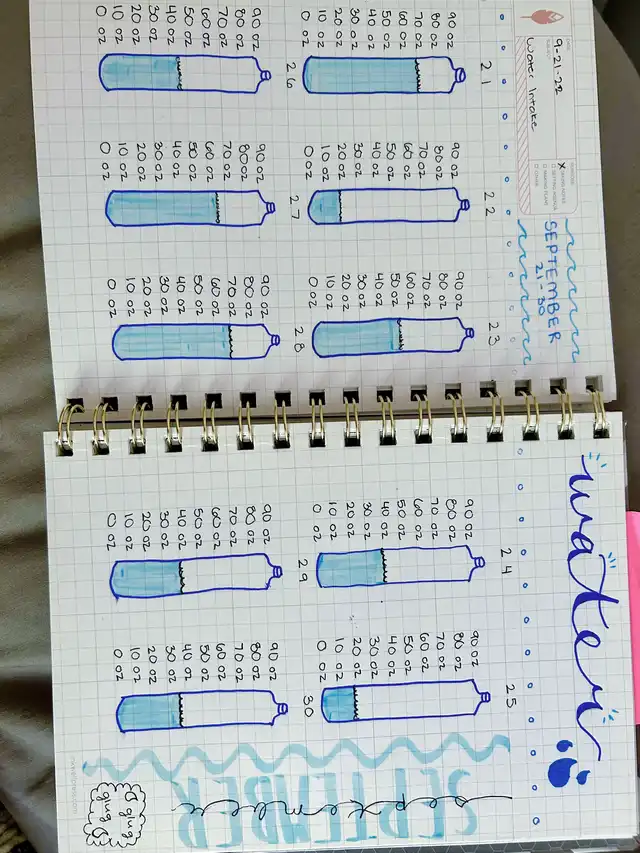 9-21-22
Water Intake
SEPTEMBER
21-30
21
90 oz
80 oz
70 oz
60 oz
50 oz
40 oz
30 oz
20 oz
10 oz
0 oz
22
90 oz
80 oz
70 oz
60 oz
50 oz
40 oz
30 oz
20 oz
10 oz
0 oz
23
90 oz
80 oz
70 oz
60 oz
50 oz
40 oz
30 oz
20 oz
10 oz
0 oz
26
90 oz
80 oz
70 oz
60 oz
50 oz
40 oz
30 oz
20 oz
10 oz
0 oz
27
90 oz
80 oz
70 oz
60 oz
50 oz
40 oz
30 oz
20 oz
10 oz
0 oz
28
90 oz
80 oz
70 oz
60 oz
50 oz
40 oz
30 oz
20 oz
10 oz
0 oz
water
24
90 oz
80 oz
70 oz
60 oz
50 oz
40 oz
30 oz
20 oz
10 oz
0 oz
25
90 oz
80 oz
70 oz
60 oz
50 oz
40 oz
30 oz
20 oz
10 oz
0 oz
29
90 oz
80 oz
70 oz
60 oz
50 oz
40 oz
30 oz
20 oz
10 oz
0 oz
30
90 oz
80 oz
70 oz
60 oz
50 oz
40 oz
30 oz
20 oz
10 oz
0 oz
SEPTEMBER
september
glug
glug